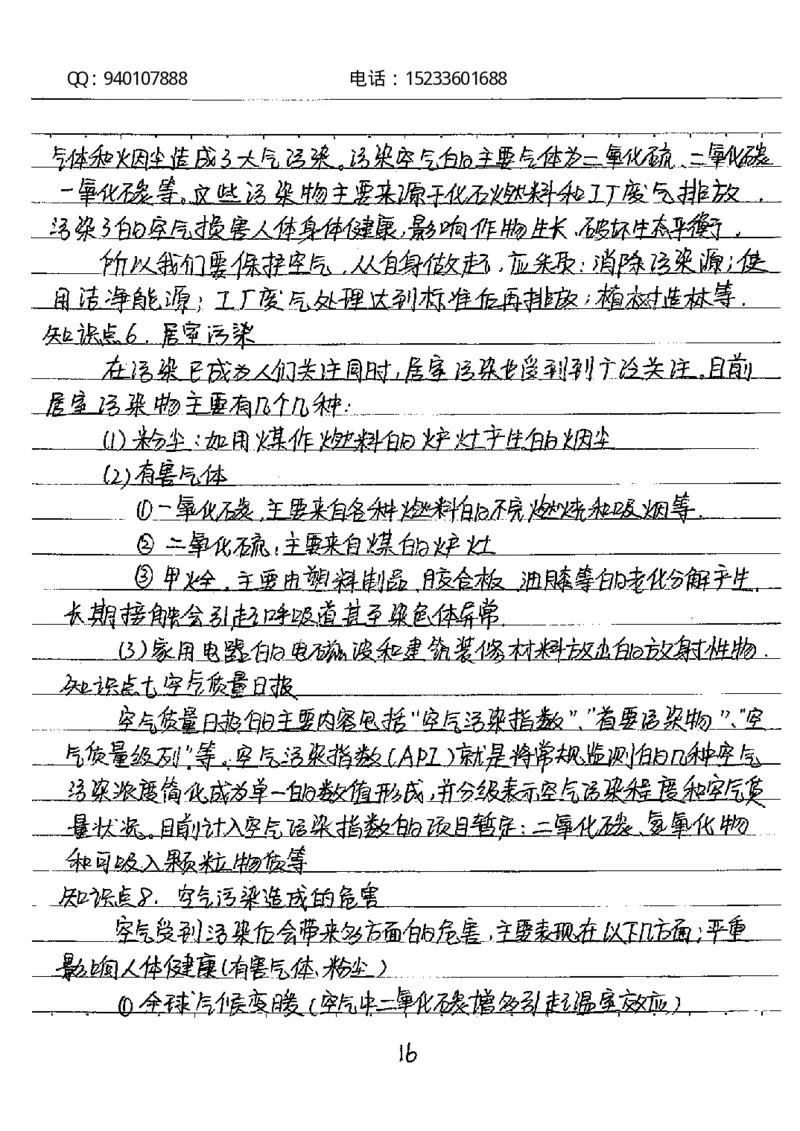 QQ：940107888 电话：15233601688
气体和烟尘造成了大气污染。污染空气的主要气体为二氧化硫、二氧化碳
一氧化碳等。这些污染物主要来源于化石燃料和工厂废气排放．
污染了的空气损害人体身体健康，影响作物生长、破坏生态平衡．
所以我们要保护空气，从自身做起，应采取：消除污染源；使
用洁净能源；工厂废气处理达到标准后再排放；植树造林等．
知识点6．居室污染
在污染已成为人们关注同时，居室污染也受到到广泛关注。目前
居室污染物主要有几个几种：
(1)粉尘：如用煤作燃料的炉灶产生的烟尘
(2)有害气体
①一氧化碳，主要来自各种燃料的不完燃烧和吸烟等．
② 二氧化硫，主要来自煤的炉灶
③ 甲烃，主要由塑料制品、胶合板 油膝等的老化分解产生，
长期接触会引起呼吸道甚至染色体异常．
(3)家用电器的电磁波和建筑装修材料放出的放射性物．
知识点七 空气质量日报
空气质量日报的主要内容包括“空气污染指数”、“首要污染物”、“空
气质量级列”等。空气污染指数(API)就是将常规监测的几种空气
污染浓度简化成为单一的数值形成，并分级表示空气污染程度和空气质
量状况。目前计入空气污染指数的项目暂定：二氧化碳、氮氧化物
和可吸入颗粒物质等
知识点8．空气污染造成的危害
空气受到污染后会带来多方面的危害，主要表现在以下几方面；严重
影响人体健康(有害气体、粉尘)
①全球气候变暖(空气中二氧化碳增多引起温室效应)
16